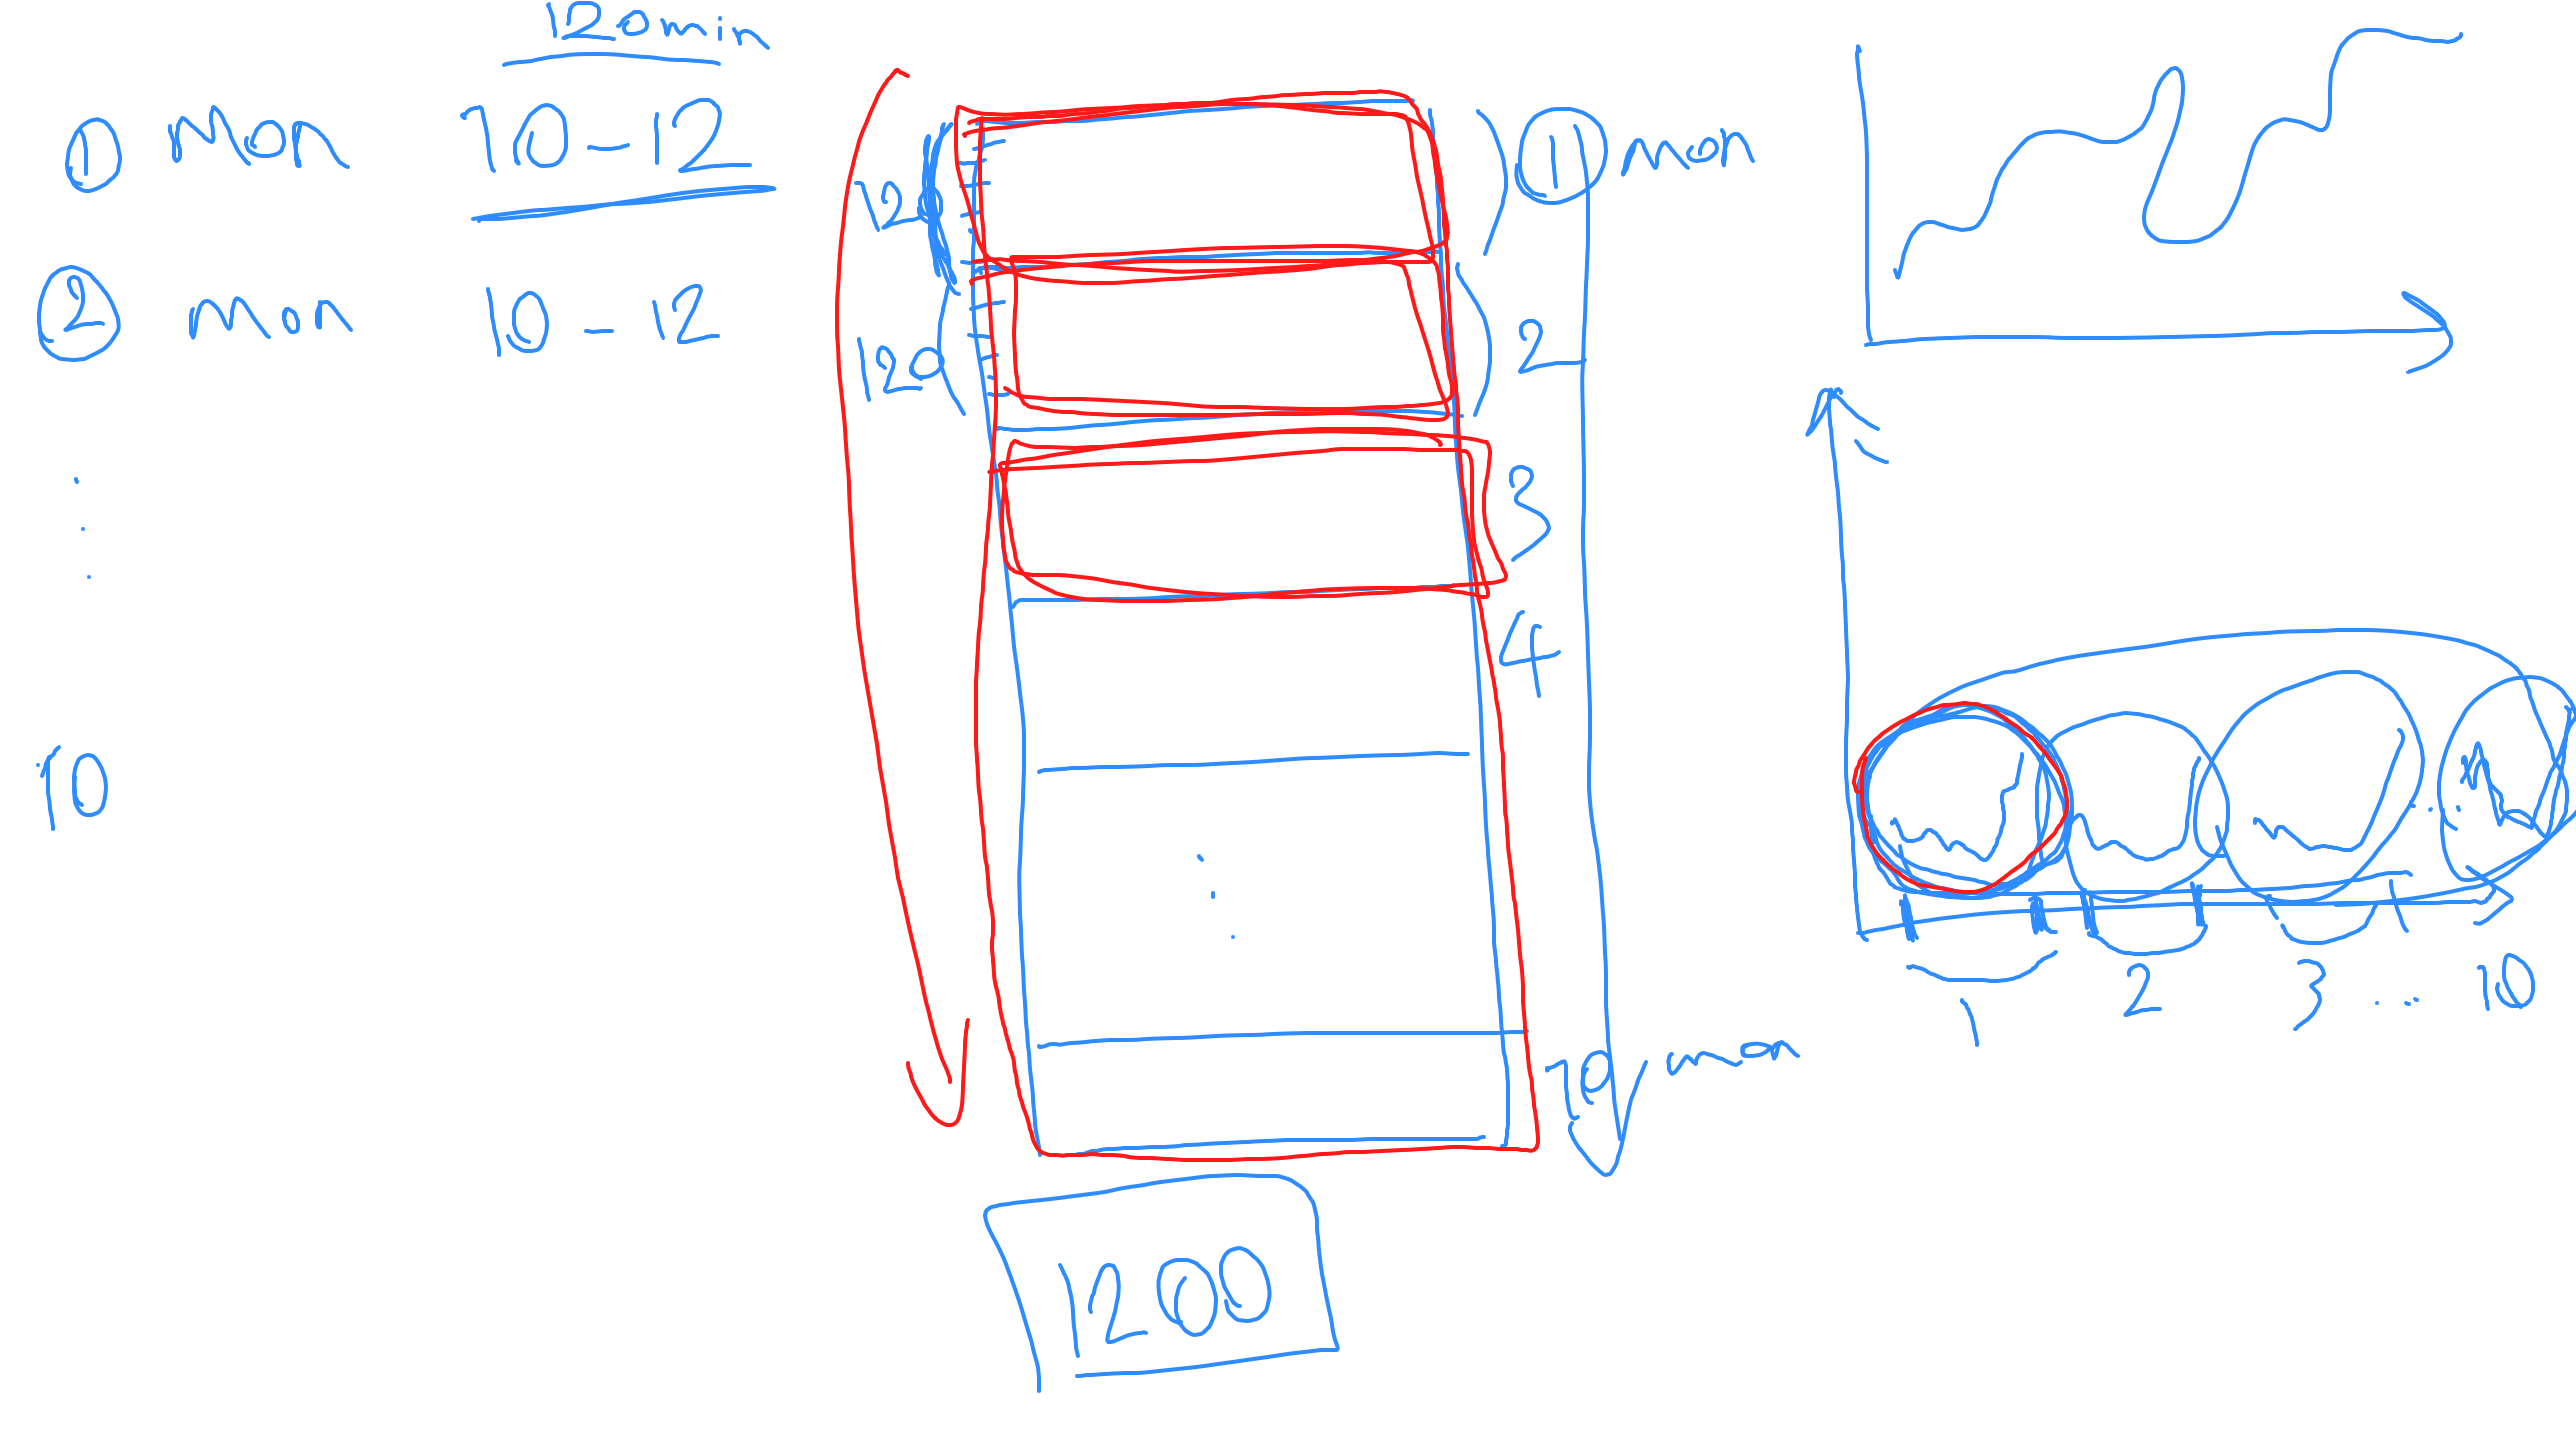 120min
① mon 10-12
② mon 10-12
.
.
.
10
120
120
① mon
2
3
4
.
.
.
10 mon
1200
...
1 2 3 ... 10